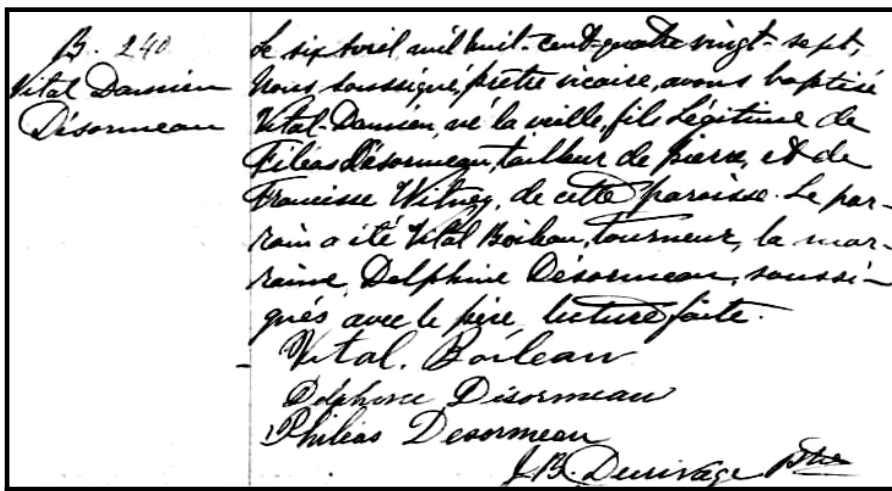 B. 240
Vital Damien
Désormeau
Le six avril, mil huit-cent-quatre vingt-sept,
Nous, soussigné, prêtre vicaire, avons baptisé
Vital-Damien, né la veille, fils légitime de
Filéas Désormeau, tailleur de pierre, et de
Francisse Witney, de cette paroisse. Le par-
rain a été Vital Boileau, tourneur, la mar-
raine, Delphine Désormeau, soussi-
gnés avec le père, lecture faite.
Vital. Boileau
Delphine Désormeau
Philéas Desormeau
J.B. Durivage Ptre